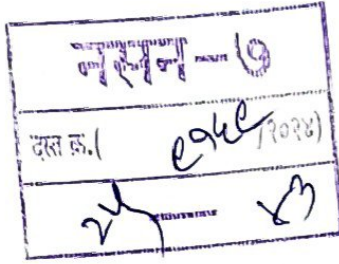 नसन - ७
दस्त क्र.( ९१५९ /२०२४)
४३